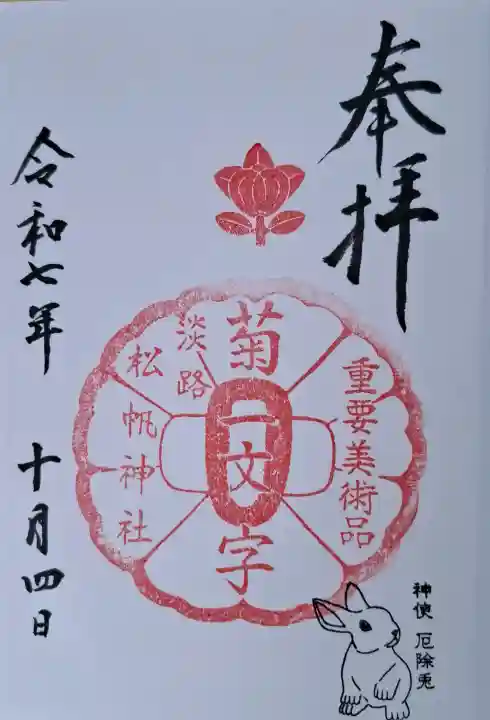 奉拝
重要美術品
菊一文字
淡路
松帆神社
令和七年 十月四日
神使 厄除兎